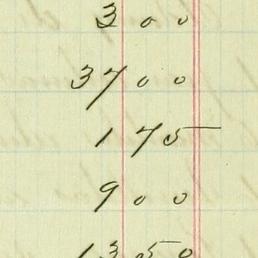 3 00
37 00
1 75
9 00
13 50